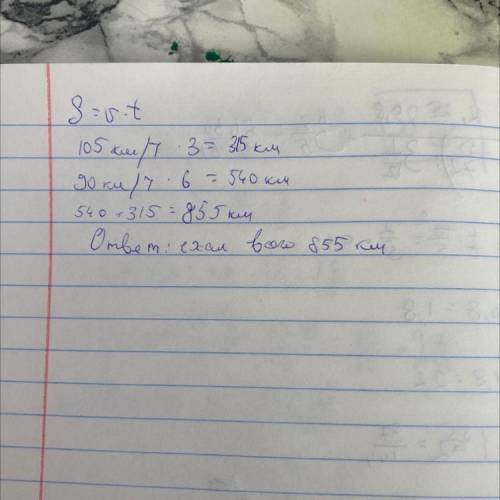 S = v · t
105 км/ч · 3 = 315 км
90 км/ч · 6 = 540 км
540 + 315 = 855 км
Ответ: ехал всего 855 км